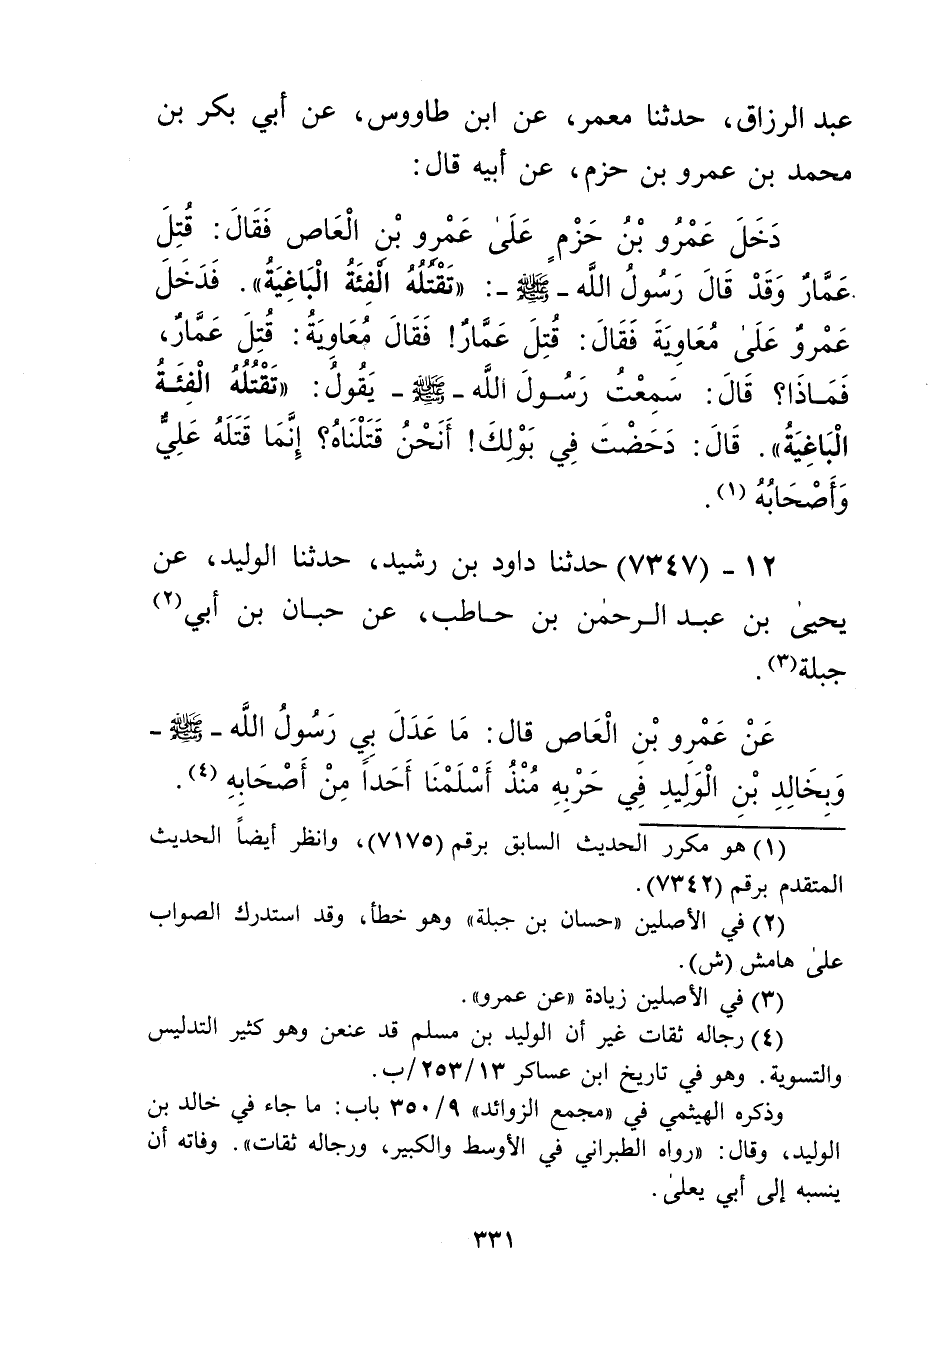 عبد الرزاق، حدثنا معمر، عن ابن طاووس، عن أبي بكر بن
محمد بن عمرو بن حزم، عن أبيه قال:
دَخَلَ عَمْرُو بْنُ حَزْمٍ عَلَىٰ عَمْرِو بْنِ الْعَاصِ فَقَالَ: قُتِلَ
عَمَّارٌ وَقَدْ قَالَ رَسُولُ اللَّه ـ ﷺ ـ: «تَقْتُلُهُ الْفِئَةُ الْبَاغِيَةُ». فَدَخَلَ
عَمْرٌو عَلَىٰ مُعَاوِيَةَ فَقَالَ: قُتِلَ عَمَّارٌ! فَقَالَ مُعَاوِيَةُ: قُتِلَ عَمَّارٌ،
فَمَاذَا؟ قَالَ: سَمِعْتُ رَسُولَ اللَّه ـ ﷺ ـ يَقُولُ: «تَقْتُلُهُ الْفِئَةُ
الْبَاغِيَةُ». قَالَ: دَحَضْتَ فِي بَوْلِكَ! أَنَحْنُ قَتَلْنَاهُ؟ إِنَّمَا قَتَلَهُ عَلِيٌّ
وَأَصْحَابُهُ (١).
١٢ ـ (٧٣٤٧) حدثنا داود بن رشيد، حدثنا الوليد، عن
يحيىٰ بن عبد الرحمٰن بن حاطب، عن حبان بن أبي(٢)
جبلة(٣).
عَنْ عَمْرِو بْنِ الْعَاصِ قال: مَا عَدَلَ بِي رَسُولُ اللَّه ـ ﷺ ـ
وَبِخَالِدِ بْنِ الْوَلِيدِ فِي حَرْبِهِ مُنْذُ أَسْلَمْنَا أَحَداً مِنْ أَصْحَابِهِ (٤).
(١) هو مكرر الحديث السابق برقم (٧١٧٥)، وانظر أيضاً الحديث
المتقدم برقم (٧٣٤٢).
(٢) في الأصلين «حسان بن جبلة» وهو خطأ، وقد استدرك الصواب
علىٰ هامش (ش).
(٣) في الأصلين زيادة «عن عمرو».
(٤) رجاله ثقات غير أن الوليد بن مسلم قد عنعن وهو كثير التدليس
والتسوية. وهو في تاريخ ابن عساكر ٢٥٣/١٣/ب.
وذكره الهيثمي في «مجمع الزوائد» ٣٥٠/٩ باب: ما جاء في خالد بن
الوليد، وقال: «رواه الطبراني في الأوسط والكبير، ورجاله ثقات». وفاته أن
ينسبه إلى أبي يعلىٰ.
٣٣١